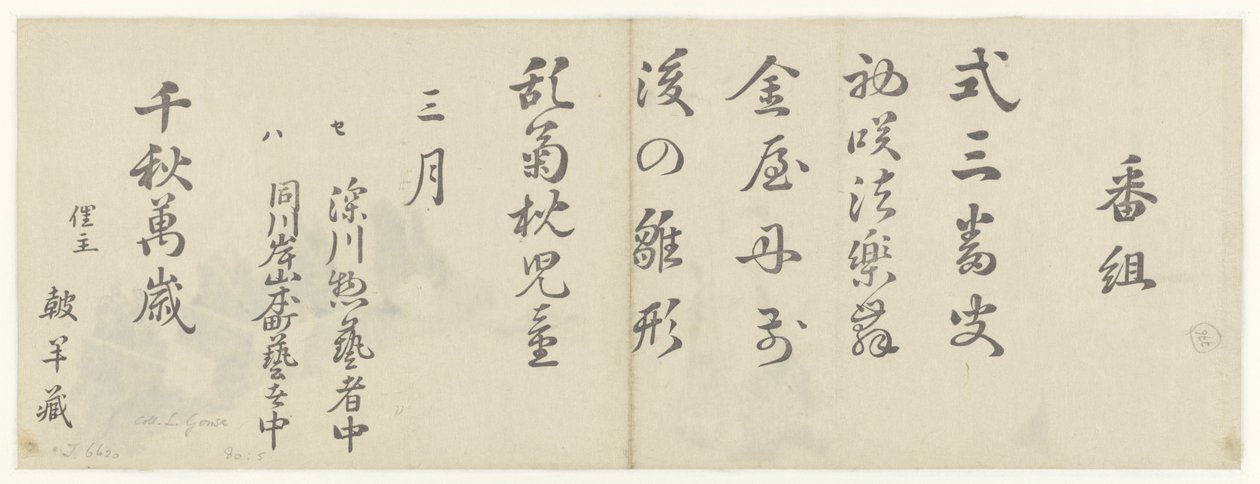 番組
式三番叟
初咲法楽舞
金屋丹前
後の雛形
乱菊枕児童
三月
セ 深川惣藝者中
ハ 同川岸山本町藝者中
千秋萬歳
催主
皷半藏
Coll. L. Gonse
J. 6620
80:5